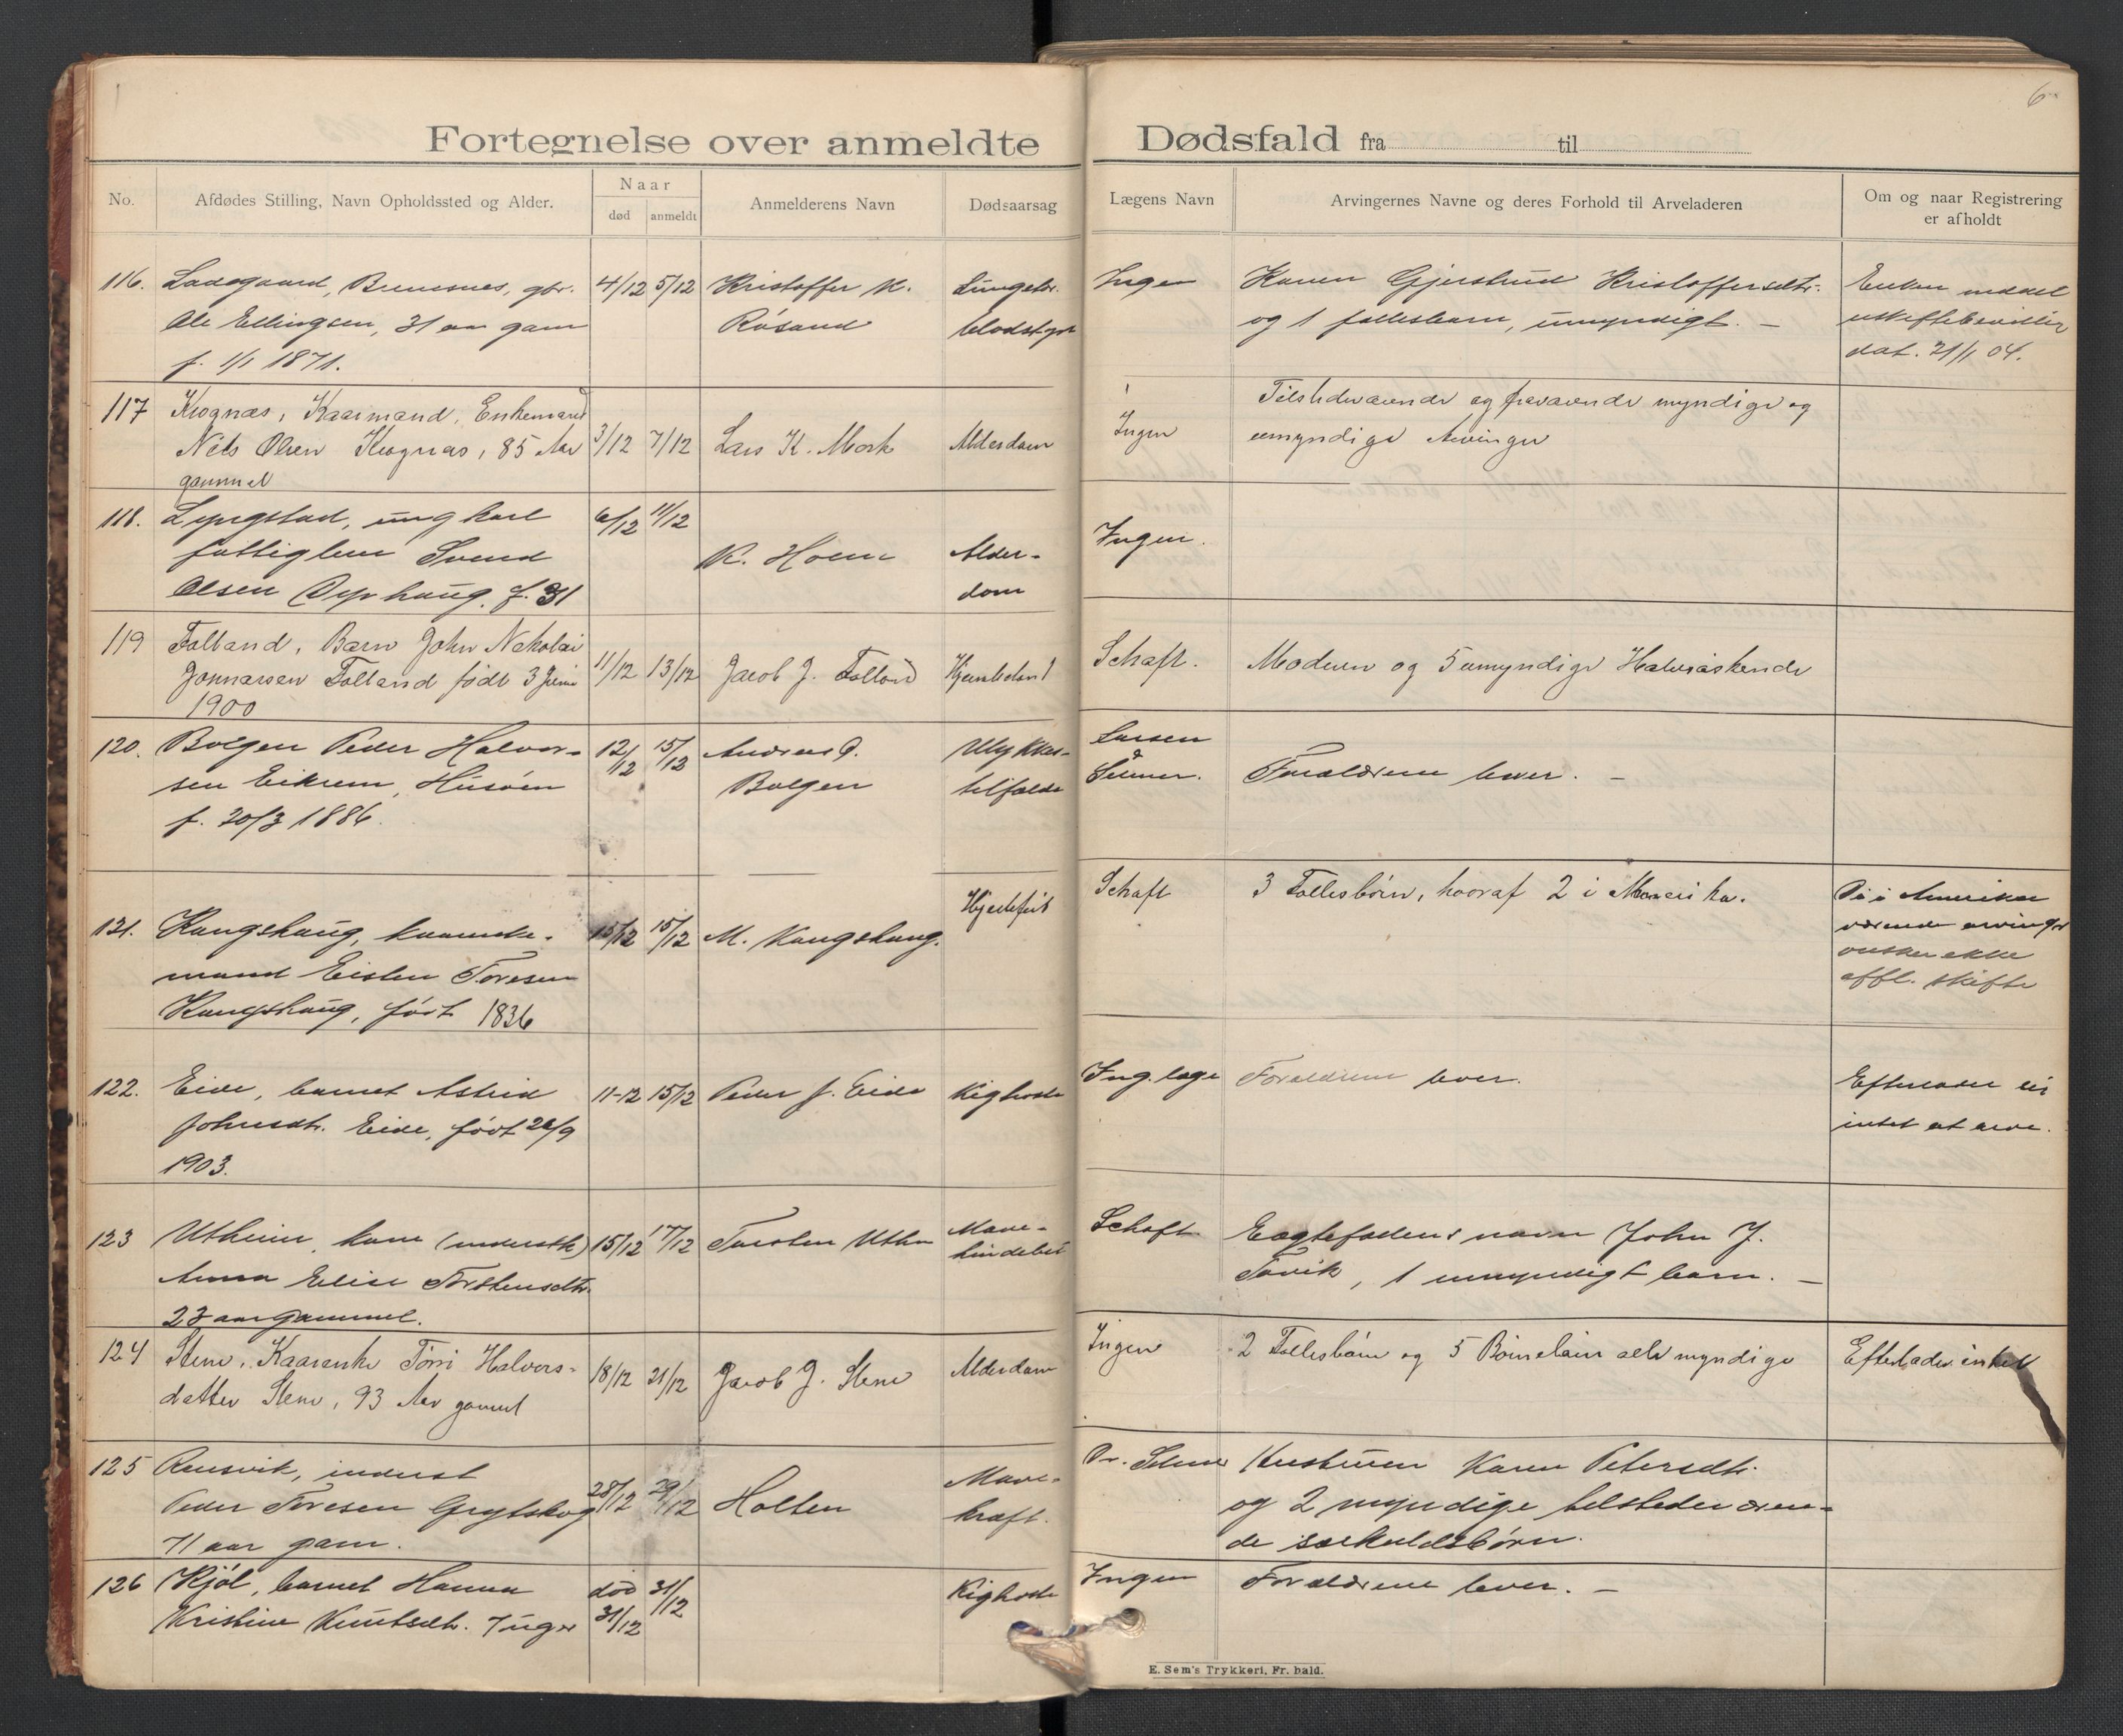 6
Fortegnelse over anmeldte Dødsfald fra til
No. Afdødes Stilling, Navn Opholdssted og Alder. Naar død anmeldt Anmelderens Navn Dødsaarsag Lægens Navn Arvingernes Navne og deres Forhold til Arveladeren Om og naar Registrering er afholdt
116. Ladegaard, Bremsnes, gbr. 4/12 5/12 Kristoffer K. Ingen Karen Gjertrud Kristoffersdtr. Enken meddel
Ole Ellingsen, 31 aar gam Røsand blodstyrt og 1 fællesbarn, umyndigt. —
f. 1/1 1871. dat. 21/1 04.
117 Kaarmand, Enkemand Tilstedeværende og fraværende myndige og
Nils Olsen 85 Aar 3/12 7/12 Lars K. Mork Alderdom Ingen umyndige Arvinger
gammel
118. Lyngstad, ungkarl 6/12 11/12 Ingen.
fattiglem Svend K. Holm Alder-
Olsen Dyrhaug, f. 31 dom
119 Folland, Barn John Nekolai
Gunnarsen Folland født 3 Juni 11/12 13/12 Jacob J. Folland Schaft. Moderen og 5 umyndige Halvsøskende
1900
120. Bolgen Peder Halvor- 12/12 15/12 Andreas P. Ulykkes- Larsen
sen Eikrem, Husøen Bolgen tilfælde & Selmer. Forældrene lever. —
f. 20/3 1886.
Hjertefeil Schaft 3 Fællesbørn, hvoraf 2 i Amerika. De i Amerika
121. Kongshaug, kaarenke- 15/12 15/12 M. Kongshaug. værende arvinger
mand Eisten Toresen ønsker ikke
Kongshaug, født 1836 offl. skifte
122. Eide, barnet Astrid 11-12 15/12 Peder J. Eide Kighoste Ing. læge Forældrene lever. Efterlader sig
Johnsdtr. Eide, født 26/9 intet at arve.
1903.
123 Utheim, kone (inderstk) 15/12 17/12 Torsten Uthm Mave- Schaft Ægtefællens navn John J.
Anna Elise Torstensdtr. hindebet , 1 umyndigt barn. —
23 aar gammel.
124 Stene, Kaarenke Halvors- 18/12 21/12 Jacob J. Stene Alderdom Ingen 2 Fællesbørn og 5 Børnebørn alle myndige Efterlader intet
datter Stene, 93 Aar gammel
125 Rensvik, inderst Mave- Dr. Selmer Hustruen Karen Petersdtr.
Peder Toresen Grytskog 28/12 29/12 Holten kræft. og 2 myndige tilstedeværen-
71 aar gam. de særkuldsbørn.
126 Kjøl, barnet Hanna død 31/12 Kighoste Ingen Forældrene lever. —
Kristine Knutsdtr. 7 uger 31/12
E. Sem's Trykkeri, Fr. hald.